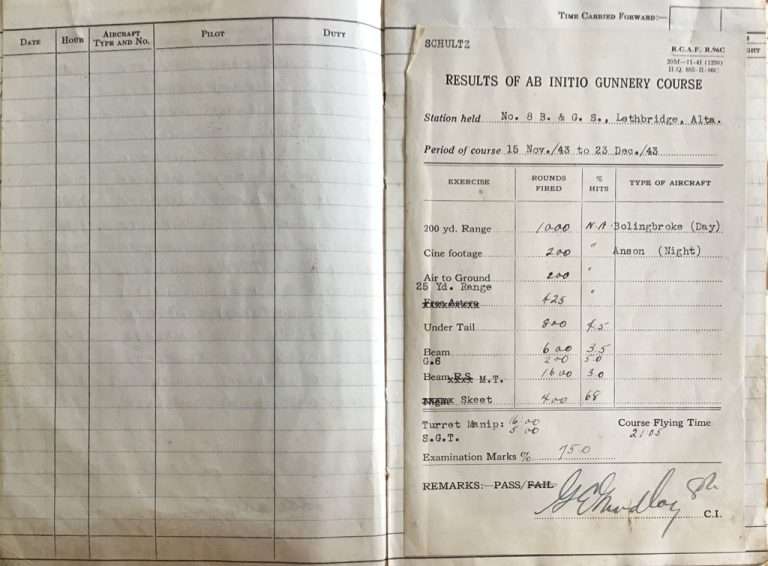 DATE HOUR AIRCRAFT TYPE AND NO. PILOT DUTY
TIME CARRIED FORWARD:—
SCHULTZ
R.C.A.F. R.96C
RESULTS OF AB INITIO GUNNERY COURSE
Station held No. 8 B. & G. S., Lethbridge, Alta.
Period of course 15 Nov./43 to 23 Dec./43
EXERCISE ROUNDS FIRED % HITS TYPE OF AIRCRAFT
200 yd. Range 1000 N.A Bolingbroke (Day)
Cine footage 200 " Anson (Night)
Air to Ground 200 "
25 Yd. Range 425 "
Under Tail 800 4.5
Beam 600 3.5
G.6 200 5.0
Beam R.S. M.T. 1600 3.0
Skeet 400 68
Turret Manip: 16.00 Course Flying Time
S.G.T. 5.00 21 05
Examination Marks % 75.0
REMARKS:—PASS/FAIL
C.I.